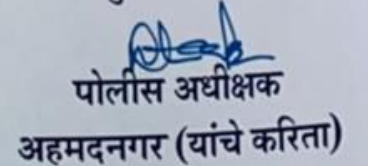 पोलीस अधीक्षक
अहमदनगर (यांचे करिता)